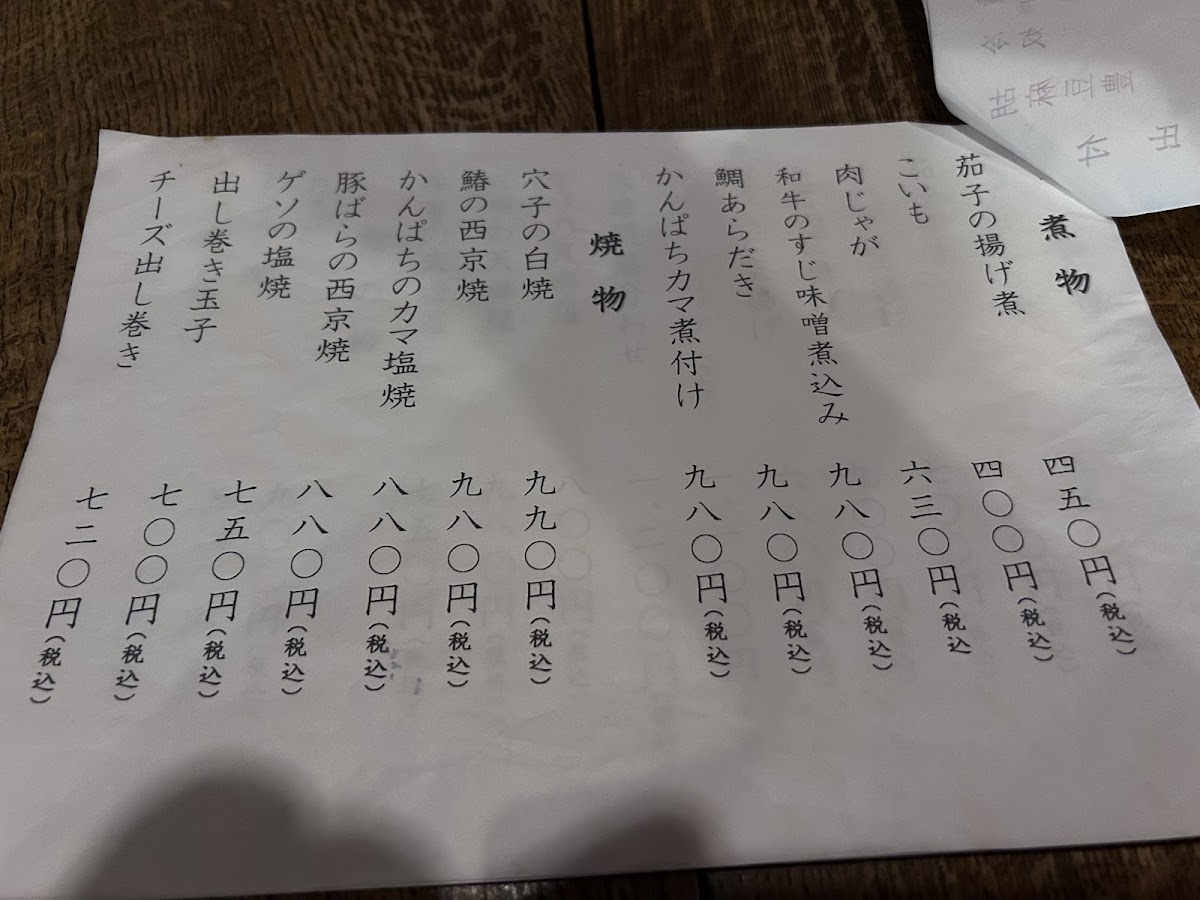 煮物
茄子の揚げ煮 四五〇円(税込)
こいも 四〇〇円(税込)
肉じゃが 六三〇円(税込
和牛のすじ味噌煮込み 九八〇円(税込)
鯛あらだき 九八〇円(税込)
かんぱちカマ煮付け 九八〇円(税込)
焼物
穴子の白焼 九九〇円(税込)
鰆の西京焼 九八〇円(税込)
かんぱちのカマ塩焼 八八〇円(税込)
豚ばらの西京焼 八八〇円(税込)
ゲソの塩焼 七五〇円(税込)
出し巻き玉子 七〇〇円(税込)
チーズ出し巻き 七二〇円(税込)